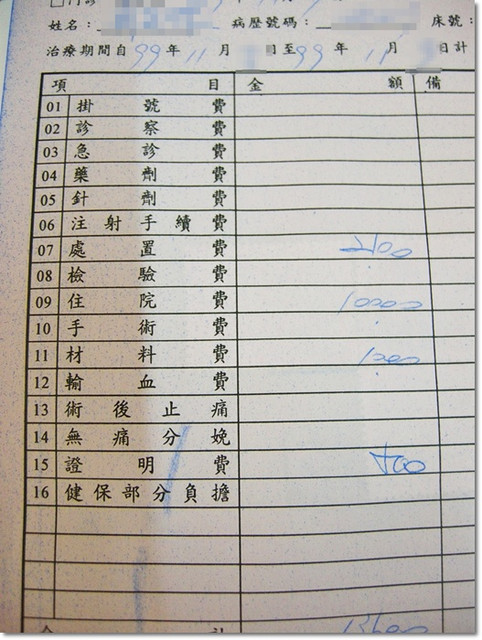 門診
姓名： 病歷號碼： 床號：
治療期間自 99 年 11 月 日至 99 年 11 月 日計
項目 金額 備
01 掛號費
02 診察費
03 急診費
04 藥劑費
05 針劑費
06 注射手續費
07 處置費 2100
08 檢驗費
09 住院費 10000
10 手術費
11 材料費 1000
12 輸血費
13 術後止痛
14 無痛分娩
15 證明費 500
16 健保部分負擔
合計 13600